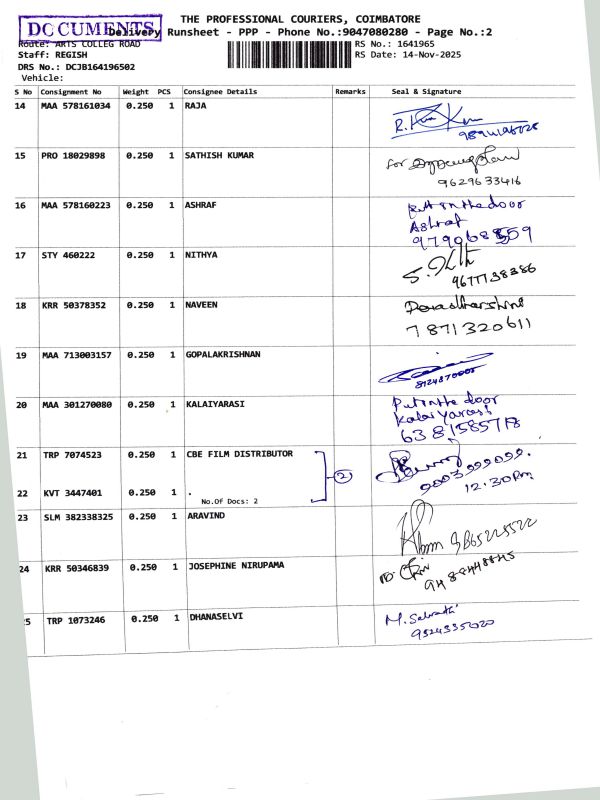 THE PROFESSIONAL COURIERS, COIMBATORE
DOCUMENTS
Delivery Runsheet - PPP - Phone No.:9047080280 - Page No.:2
Route: ARTS COLLEG ROAD
RS No.: 1641965
Staff: REGISH
RS Date: 14-Nov-2025
DRS No.: DCJB164196502
Vehicle:
S No Consignment No Weight PCS Consignee Details Remarks Seal & Signature
14 MAA 578161034 0.250 1 RAJA
15 PRO 18029898 0.250 1 SATHISH KUMAR
for
9629633416
16 MAA 578160223 0.250 1 ASHRAF
Put in the door
Ashraf
17 STY 460222 0.250 1 NITHYA
9677738386
18 KRR 50378352 0.250 1 NAVEEN
7871320611
19 MAA 713003157 0.250 1 GOPALAKRISHNAN
20 MAA 301270080 0.250 1 KALAIYARASI
Put in the door
Kalaiyarasi
21 TRP 7074523 0.250 1 CBE FILM DISTRIBUTOR
2
9003999099.
22 KVT 3447401 0.250 1 .
12.30pm
No.Of Docs: 2
23 SLM 382338325 0.250 1 ARAVIND
24 KRR 50346839 0.250 1 JOSEPHINE NIRUPAMA
5 TRP 1073246 0.250 1 DHANASELVI
M.